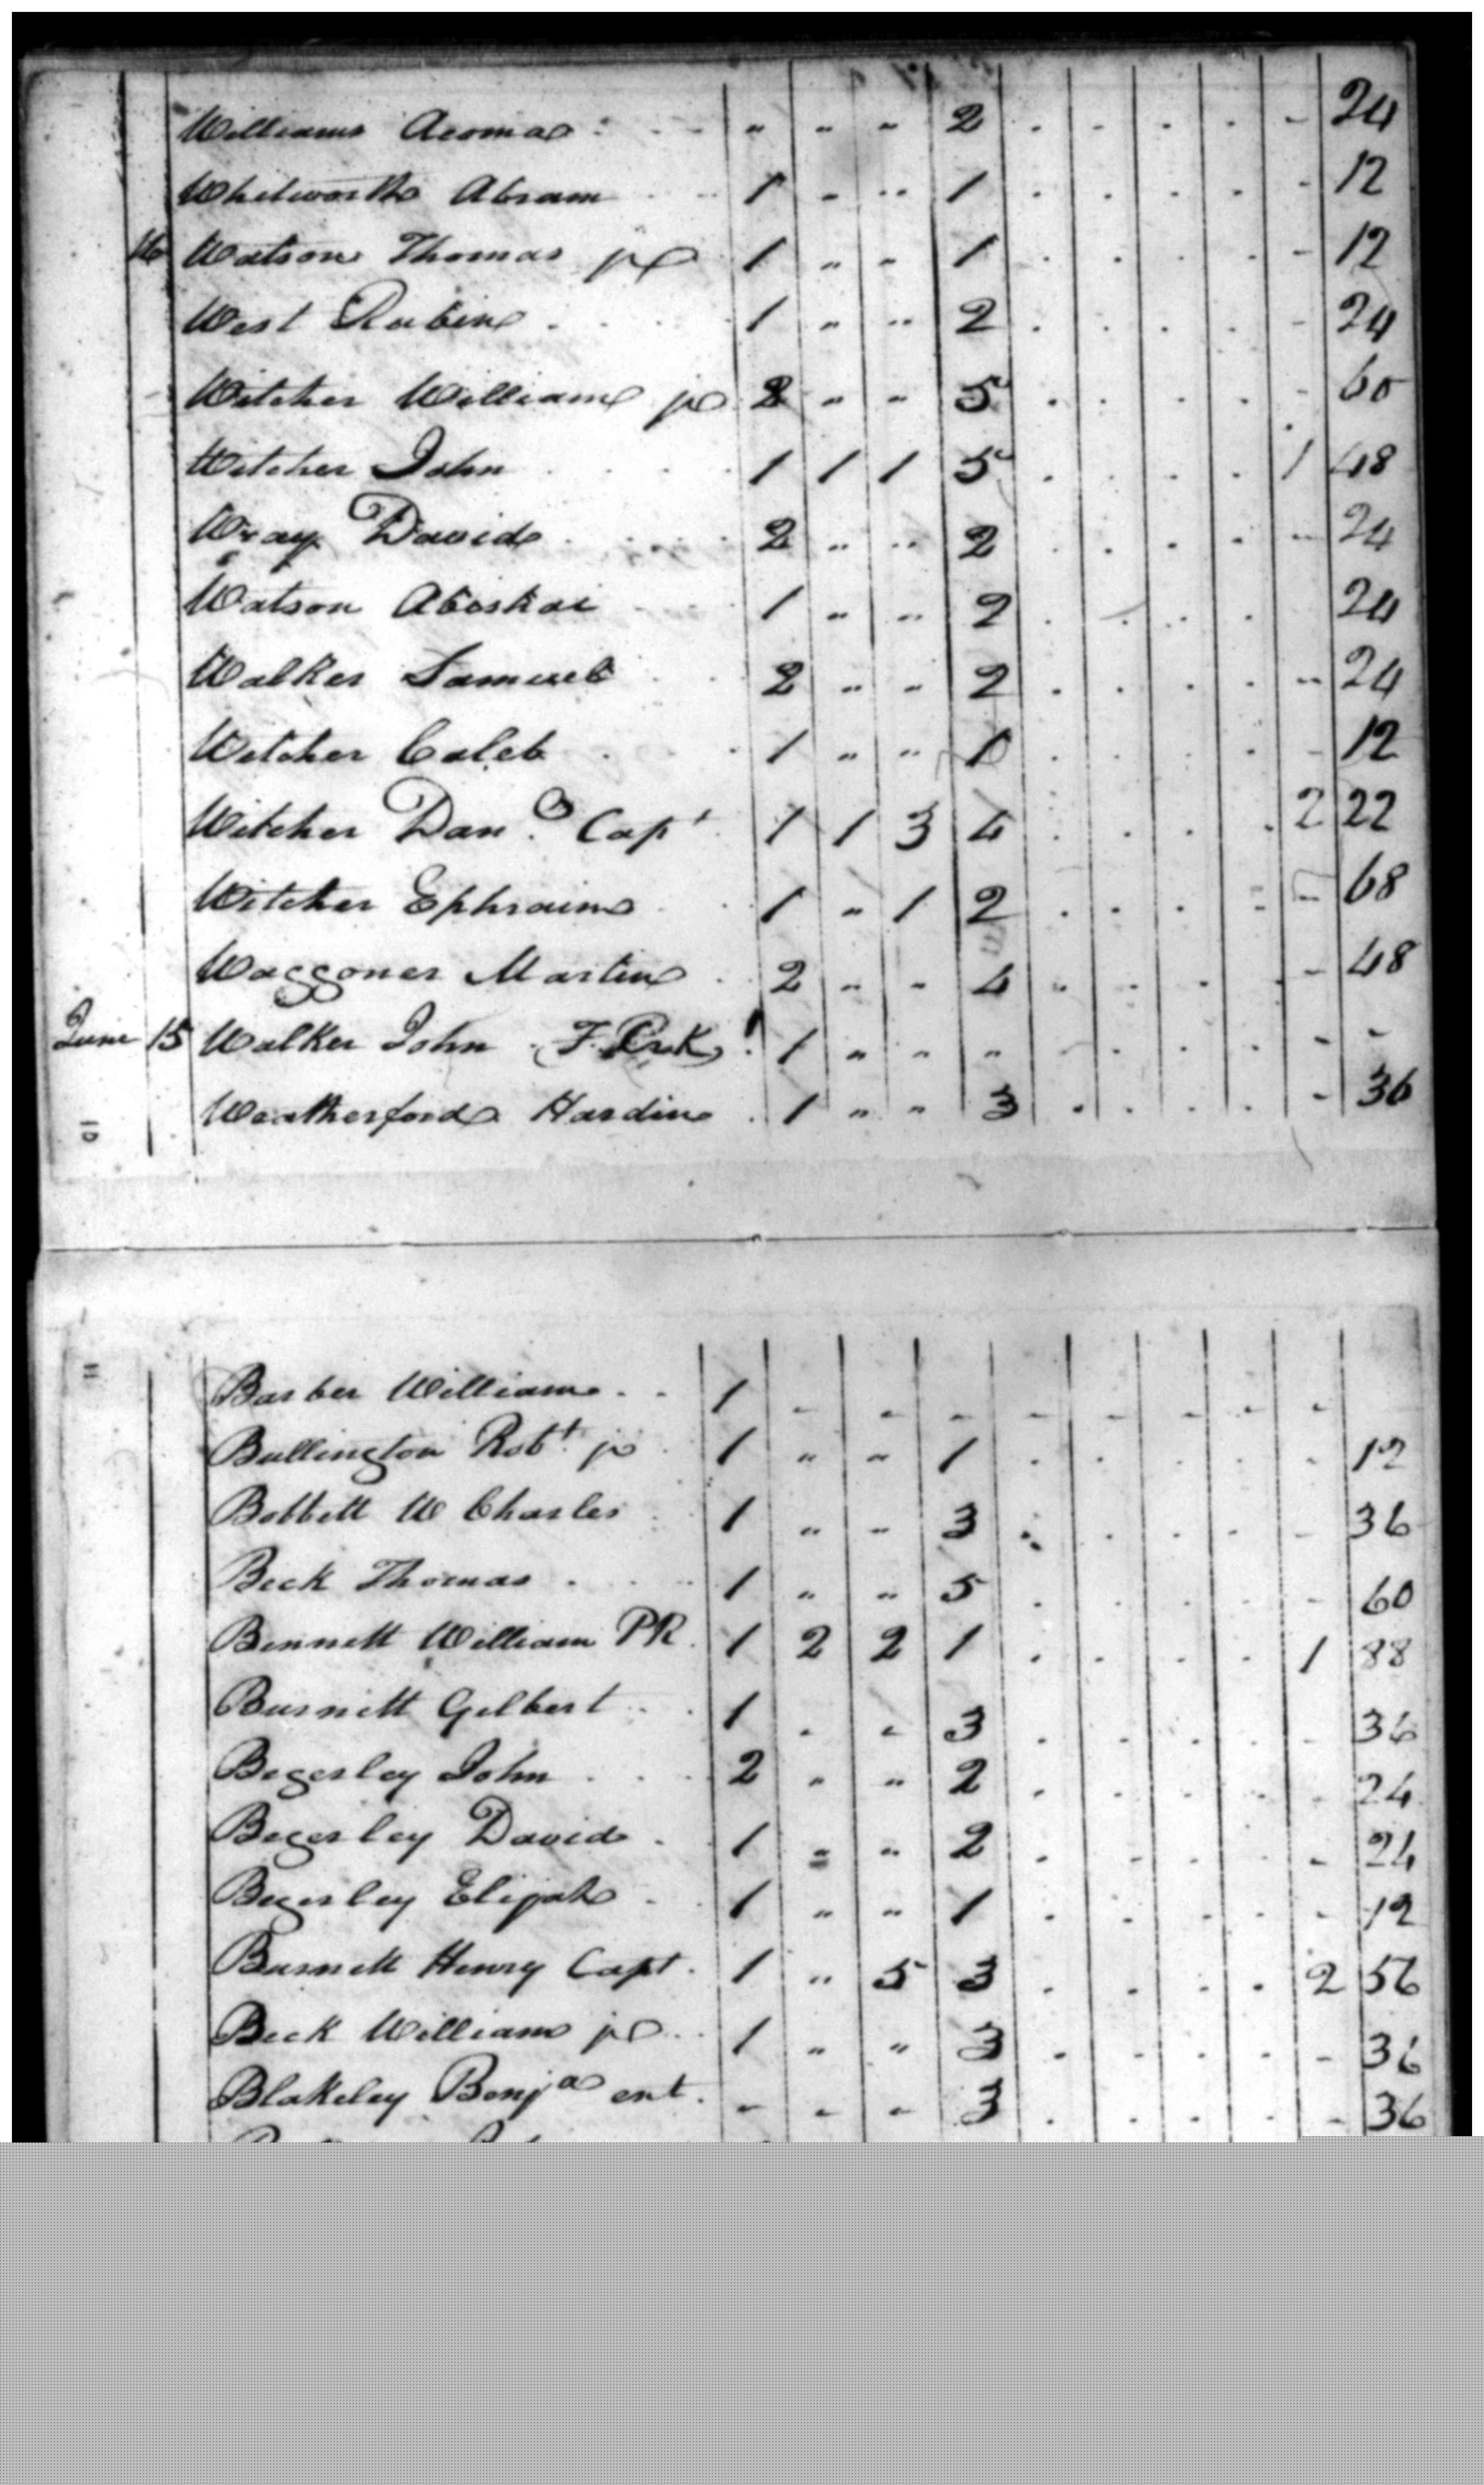 Williams Acomac - - - 2 . . . . - 24
Whitworth Abram 1 - - 1 . . . . - 12
16 Watson Thomas jr 1 - - 1 . . . . - 12
West Rubin 1 - - 2 . . . . - 24
Witcher William jr 2 - - 5 . . . . - 60
Witcher John 1 1 1 5 . . . . 1 48
Wray David 2 - - 2 . . . . - 24
Watson Abiskai 1 - - 2 . . . . 24
Walker Samuel 2 - - 2 . . . . - 24
Witcher Caleb 1 - - 1 . . . . - 12
Witcher Danl Capt 1 1 3 4 . . . . 2 22
Witcher Ephraim 1 - 1 2 . . . - - 68
Waggoner Martin 2 - - 4 . . . . - 48
June 15 Walker John 1 - - - . . . . - -
Weatherford Hardin 1 - - 3 . . . . - 36
10
11
Barber William 1 - - - - - - - -
Bullington Robt jr 1 - - 1 . . . . - 12
Bobbett W Charles 1 - - 3 . . . . - 36
Beck Thomas 1 - - 5 . . . . - 60
Bennett William PR 1 2 2 1 . . . . 1 88
Burnett Gilbert 1 - - 3 . . . . - 36
Begerley John 2 - - 2 . . . . - 24
Begerley David 1 - - 2 . . . . - 24
Begerley Elijah 1 - - 1 . . . . - 12
Burnett Henry Capt 1 - 5 3 . . . . 2 56
Beck William jr 1 - - 3 . . . . - 36
Blakeley Benja est - - - 3 . . . . - 36